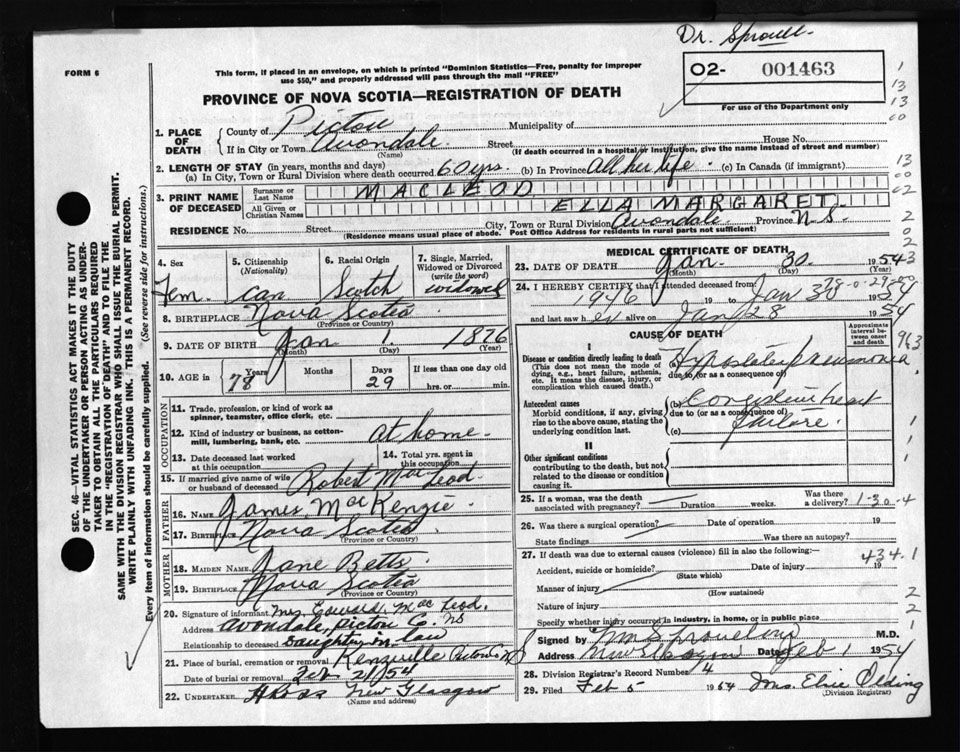 Dr. Sproull
FORM 6
This form, if placed in an envelope, on which is printed "Dominion Statistics—Free, penalty for improper
use $50," and properly addressed will pass through the mail "FREE"
O2- 001463
For use of the Department only
PROVINCE OF NOVA SCOTIA—REGISTRATION OF DEATH
1. PLACE OF DEATH
County of Pictou Municipality of
If in City or Town Avondale Street House No.
(Name) (If death occurred in a hospital or institution, give the name instead of street and number)
2. LENGTH OF STAY (in years, months and days)
(a) In City, Town or Rural Division where death occurred 60 yrs. (b) In Province All her life. (c) In Canada (if immigrant)
3. PRINT NAME OF DECEASED
Surname or Last Name MACLEOD
All Given or Christian Names ELLA MARGARET
RESIDENCE No. Street City, Town or Rural Division Avondale Province N.S.
(Residence means usual place of abode. Post Office Address for residents in rural parts not sufficient)
4. Sex Fem.
5. Citizenship (Nationality) Can
6. Racial Origin Scotch
7. Single, Married, Widowed or Divorced (write the word) widowed
8. BIRTHPLACE Nova Scotia
(Province or Country)
9. DATE OF BIRTH Jan 1. 1876
(Month) (Day) (Year)
10. AGE in 78 Years Months Days 29 If less than one day
hrs. or min.
OCCUPATION
11. Trade, profession, or kind of work as
spinner, teamster, office clerk, etc.
12. Kind of industry or business, as cotton-
mill, lumbering, bank, etc. at home
13. Date deceased last worked
at this occupation
14. Total yrs. spent in
this occupation
15. If married give name of wife
or husband of deceased Robert MacLeod
FATHER
16. NAME James MacKenzie
17. BIRTHPLACE Nova Scotia
(Province or Country)
MOTHER
18. MAIDEN NAME Jane Betts
19. BIRTHPLACE Nova Scotia
(Province or Country)
20. Signature of informant Mrs. Edward MacLeod.
Address Avondale, Pictou C. NS
Relationship to deceased Daughter in law
21. Place of burial, cremation or removal Kenzieville Pictou Co NS
Date of burial or removal Feb. 2/54
22. UNDERTAKER New Glasgow
(Name and address)
MEDICAL CERTIFICATE OF DEATH
23. DATE OF DEATH Jan. 30. 1954
(Month) (Day) (Year)
24. I HEREBY CERTIFY that I attended deceased from
1946 19 to Jan 30 1954
and last saw her alive on Jan 28 1954
CAUSE OF DEATH
Approximate interval between onset and death
I
Disease or condition directly leading to death
(This does not mean the mode of
dying, e.g., heart failure, asthenia,
etc. It means the disease, injury, or
complication which caused death.)
Hypostatic pneumonia
due to (or as a consequence of)
Antecedent causes
Morbid conditions, if any, giving
rise to the above cause, stating the
underlying condition last.
(b) Congestive heart
due to (or as a consequence of)
failure.
(c)
II
Other significant conditions
contributing to the death, but not
related to the disease or condition
causing it.
25. If a woman, was the death
associated with pregnancy? Duration weeks. Was there
a delivery? 1-30-4
26. Was there a surgical operation? Date of operation 19
State findings Was there an autopsy?
27. If death was due to external causes (violence) fill in also the following:—
434.1
Accident, suicide or homicide? Date of injury 19
(State which)
Manner of injury
(How sustained)
Nature of injury
Specify whether injury occurred in industry, in home, or in public place
Signed by M.D.
Address New Glasgow Date Feb 1 1954
28. Division Registrar's Record Number 4
29. Filed Feb 5 1954 Mrs. Elsie Olding
(Division Registrar)
SEC. 46—VITAL STATISTICS ACT MAKES IT THE DUTY
OF THE UNDERTAKER OR PERSON ACTING AS UNDER-
TAKER TO OBTAIN ALL THE PARTICULARS REQUIRED
IN THE "REGISTRATION OF DEATH" AND TO FILE THE
SAME WITH THE DIVISION REGISTRAR WHO SHALL ISSUE THE BURIAL PERMIT.
WRITE PLAINLY WITH UNFADING INK. THIS IS A PERMANENT RECORD.
Every item of information should be carefully supplied. (See reverse side for instructions.)
1
13
13
00
13
00
02
2
0
02
3
963
1
1
1
1
2
2
1